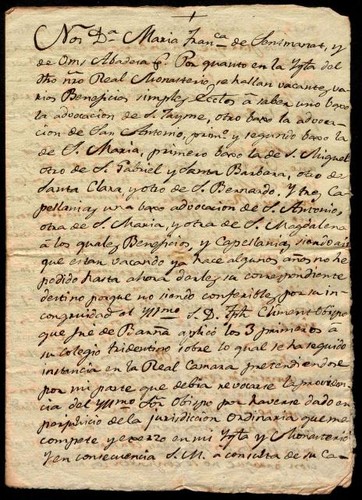 Nos D.ª Maria Fran.ca de Sentmanat, y
de Oms Abadesa &.ª Por quanto en la Ygl.ª del
dho ñro Real Monasterio, se hallan vacantes, va-
rios Beneficios simples, Ectos à saber uno baxo
la advocacion de S. Jayme, otro baxo la advoca-
cion de San Antonio, prim.º y segundo baxo la
de S. Maria, primero baxo la de S. Miguel
otro de S. Gabriel y Santa Barbara, otro de
Santa Clara y otro de S. Bernardo. Y tres Ca-
pellanias, una baxo advocacion de S. Antonio,
otra de S. Maria, y otra de S. Magdalena
à los quales Beneficios, y Capellanias, siendo asi
que estan vacando ya hace algunos años no he
podido hasta ahora darles su correspondiente
destino porque no siendo conferibles por su in-
congruidad el Yll.mo S. D. Climent Obispo
que fué de Barña aplicó los 3 primeros à
su Colegio tridentino sobre lo qual se ha seguido
instancia en la Real Camara pretendiendose
por mi parte que debia revocarse la providen-
cia del Yll.mo Sor Obispo por haverse dado en
perjuicio de la jurisdiccion Ordinaria que me
compete y exerzo en mi Ygl.ª y Monasterio
Y en consecuencia S. M. à consulta de su Ca-